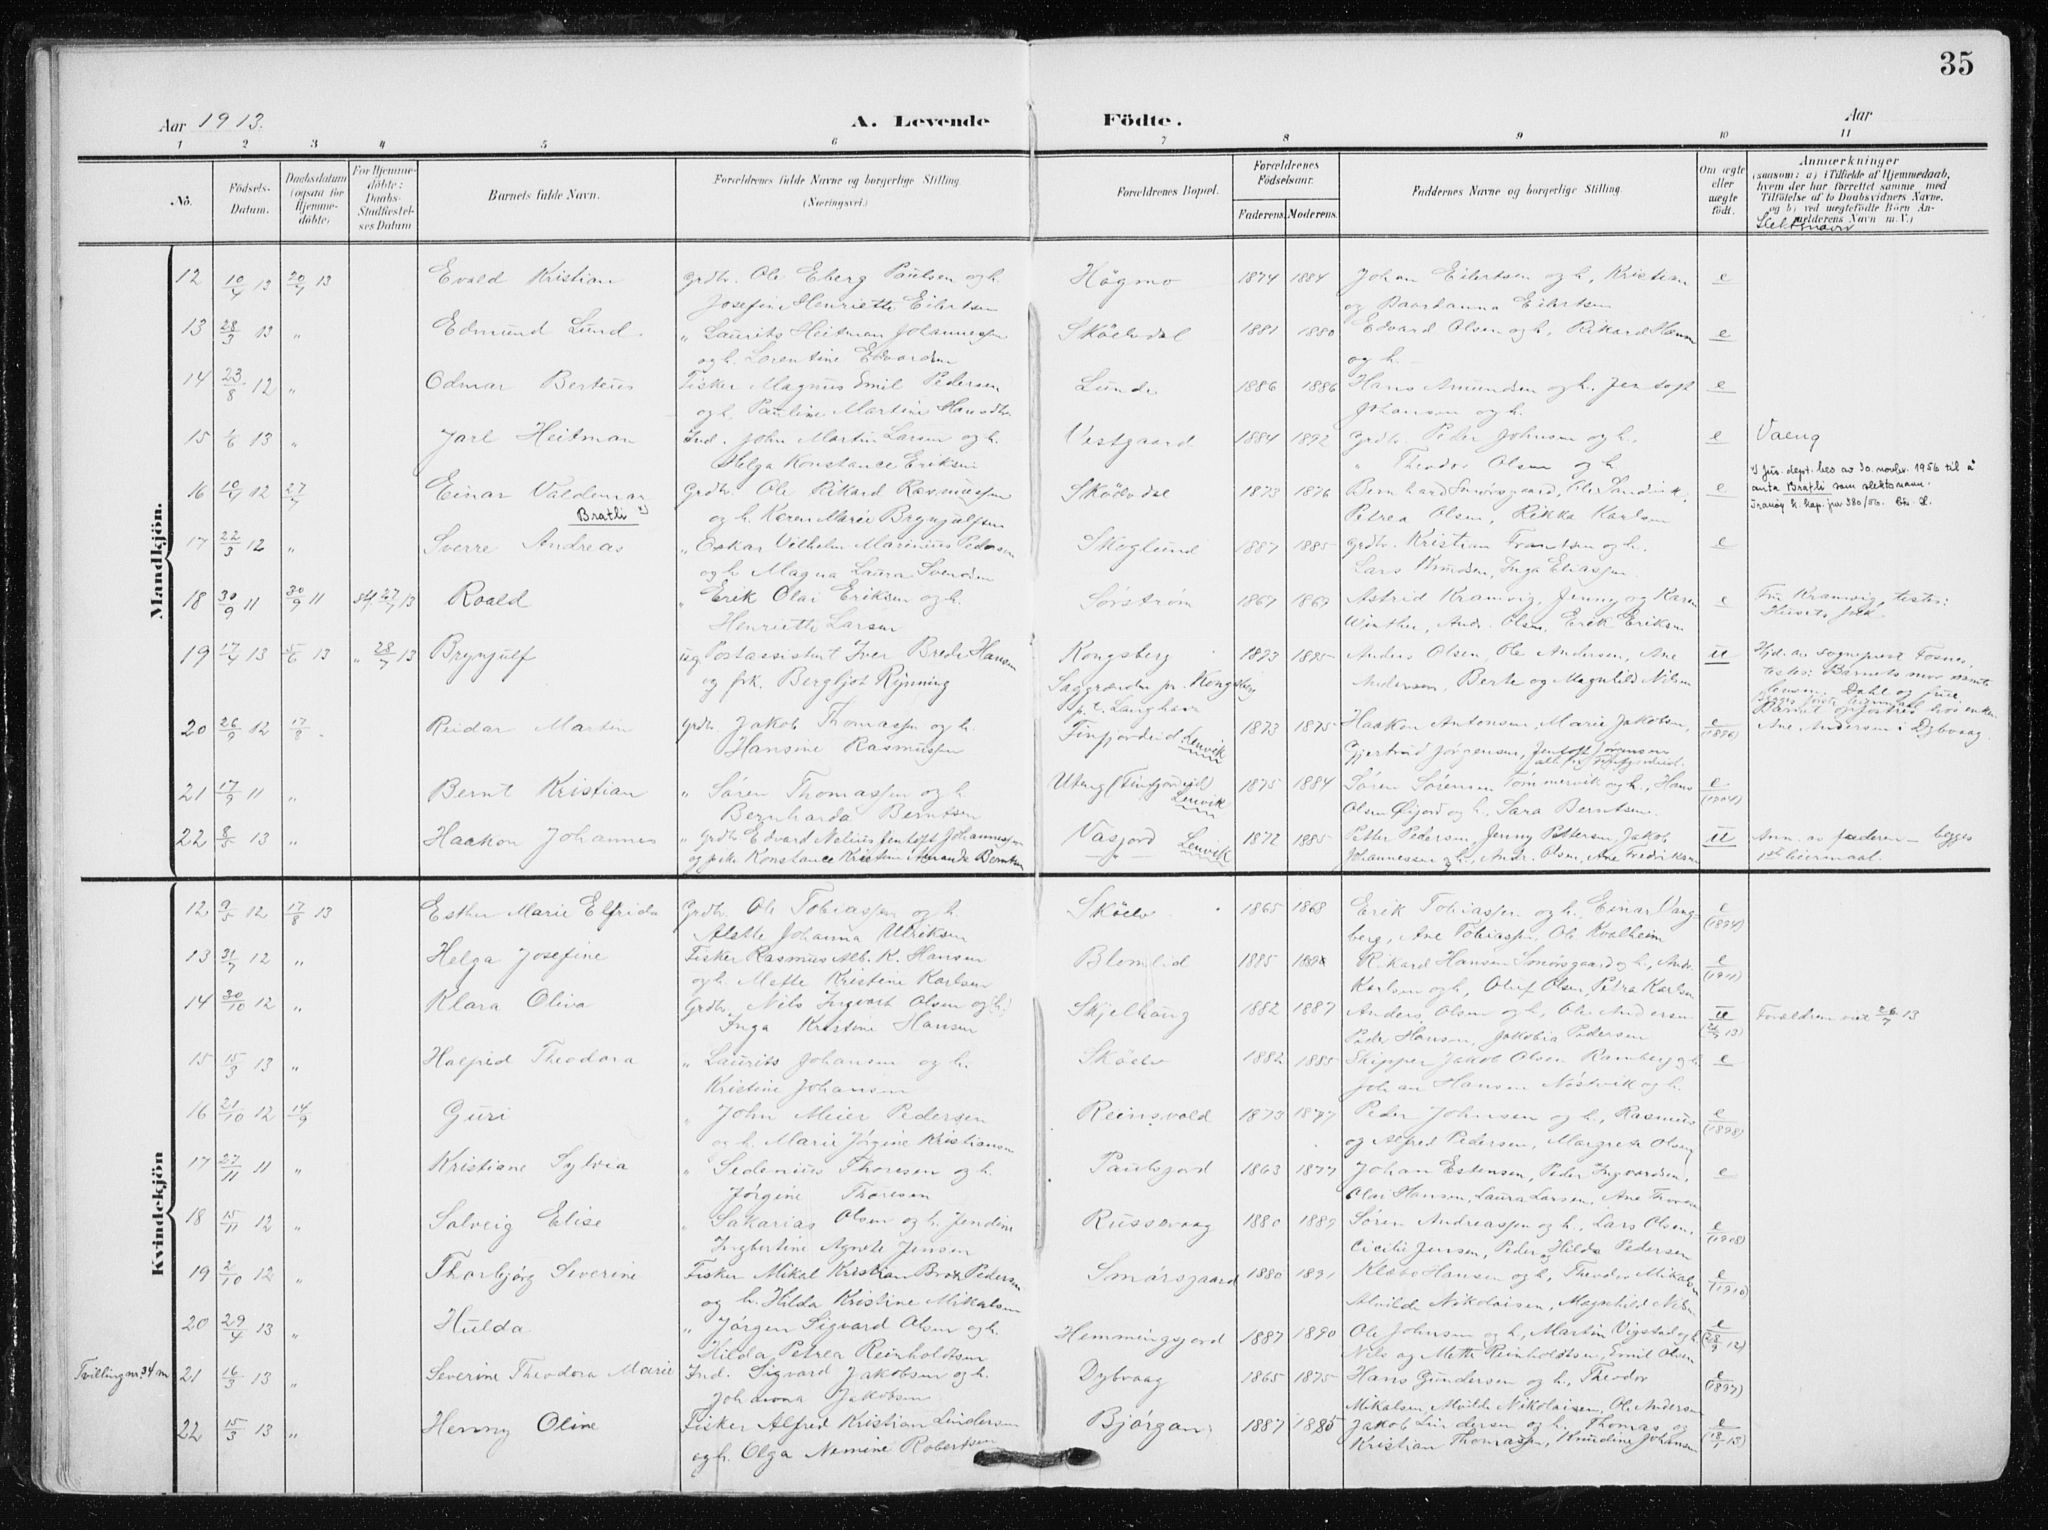 35
Aar 1913.
A. Levende Födte.
Aar
1 2 3 4 5 6 7 8 9 10 11
No.
Födsels-Datum.
Daabsdatum (ogsaa for Hjemme-döbte)
For Hjemme-döbte: Daabs-Stadfæstel-ses Datum
Barnets fulde Navn.
Forældrenes fulde Navne og borgerlige Stilling. (Næringsvei.)
Forældrenes Bopæl.
Forældrenes Födselsaar.
Faderens. Moderens.
Faddernes Navne og borgerlige Stilling.
Om ægte eller uægte født.
Anmærkninger
(saasom: a) i Tilfælde af Hjemmedaab,
hvem der har forrettet samme, med
Tilföielse af to Daabsvidners Navne,
og b) ved uægtefödte Börn An-
melderens Navn m. V.)
Slektsnavn
Mandkjön.
12 10/4 13 20/7 13 Evald Kristian Grdbr. Ole Eberg Paulsen og h. Högmo 1874 1884 Johan Eilertsen og h, Kristian e
Josefine Henriette Eilertsen og Baardanna Eilertsen
13 28/3 13 " Edmund Lund " Laurits Heitman Johannessen Sköelvdal 1881 1880 Edvard Olsen og h, Rikard Hansen e
og h. Lorentine Edvardsen og h.
14 23/8 12 " Odmar Berteus Fisker Magnus Emil Pedersen Lunde 1886 1886 Hans Amundsen og h. Jentoft e
og h, Pauline Martine Hansdtr Johansen og h.
15 1/6 13 " Jarl Heitman Ind. John Martin Larsen og h. Vestgaard 1884 1892 Grdbr. Peder Johnsen og h. e Vaeng
Helga Konstance Eriksen " Theodor Olsen og h.
16 10/7 12 27/7 Einar Valdemar Grdbr. Ole Rikard Rasmussen Sköelvdal 1873 1876 Bernhard Smörsgaard, Ole Sandvik, e
Bratli x) og h. Karen Marie Brynjulfsen Petrea Olsen, Rikka Karlsen
x) Jus. dept. bev av 30. novbr. 1956 til å
anta Bratli som slektsnavn.
Tranöy h. kap. jnr 380/56.
17 22/3 12 " Sverre Andreas " Oskar Vilhelm Marinius Pedersen Skoglund 1887 1885 Grdbr. Kristian Frantsen og h. e
og h Magna Laura Svendsen Lars Knudsen, Inga Eliassen.
18 30/9 11 30/9 11 St. 27/7 13 Roald " Erik Olai Eriksen og h. Sörström 1867 1867 Astrid Kramvig, Jenny og Karen e Fru Kramvig, testes:
Henriette Larsen Winther, Andr. Olsen, Erik Eriksen Husets folk
19 17/4 13 5/6 13 " 28/7 13 Brynjulf ug Postassistent Iver Brede Hansen Kongsberg 1893 1895 Anders Olsen, Ole Andersen, Ane u Hjd. av sogneprest Fosnes,
og frk. Bergljot Rynning Saggrenden pr. Kongsberg Andersen, Berte og Magnhild Nilsen testes: Barnets mor samt
p. t. Langhavn Dahl og frue
Barnet opfostres hos enken
Ane Andersen i Dybvaag.
20 26/9 12 17/8 " Reidar Martin Grdbr. Jakob Thomassen og h. Finfjordeid Lenvik 1873 1875 Haakon Antonsen, Marie Jakobsen, e (1896)
Hansine Rasmussen Gjertrud Jörgensen, Jentoft Jörgensen
21 17/9 11 " Bernt Kristian " Sören Thomassen og h Uteng (Finfjordeid) Lenvik 1875 1884 Sören Sörensen Tömmervik og h, Hans e (1904)
Bernharda Berntsen Olsen Öijord og h, Sara Berntsen.
22 8/5 13 " Haakon Johannes " Grdbr Edvard Nelius Jentoft Johannessen Vasjord Lenvik 1872 1885 Petter Pedersen, Jenny Pettersen, Jakob u Ann. av faderen – begges
og pike Konstance Kristine Amanda Berntsen Johannessen og h, Andr. Olsen, Ane Fredriksen 1ste leiermaal.
Kvindekjön
12 9/5 12 17/8 13 Esther Marie Elfrida Grdbr. Ole Tobiassen og h. Sköelv 1865 1868 Erik Tobiassen og h, Einar Vang- e (1894)
Alette Johanna Ulriksen berg, Ane Tobiassen, Ole Kvalheim
13 31/7 12 " Helga Josefine Fisker Rasmus Alb. K. Hansen Blomlid 1885 Rikard Hansen Smörsgaard og h, Andr. e (1911)
og h. Mette Kristine Karlsen Karlsen og h, Oluf Olsen, Petra Karlsen
14 30/10 12 " Klara Oliva Grdbr. Nils Ingvart Olsen og (h.) Skjelhaug 1882 1887 Anders Olsen og h, Ole Andersen u (26/7 13) Forældrene viet 26/7 13
Inga Kristine Hansen Peder Hansen, Jakobia Pedersen
15 15/3 13 " Halfrid Theodora " Laurits Johansen og h. Sköelv 1882 1885 Skipper Jakob Olsen Ramberg og h. e
Kristine Johansen Johan Hansen Nöstvik og h.
16 21/10 12 14/9 Guri " John Meier Pedersen Reinsvold 1873 1877 Peder Johnsen og h, Rasmus e (1898)
og h. Marie Jörgine Kristiansen og Alfred Pedersen, Margrete Olsen
17 27/11 11 " Kristiane Sylvia " Sedenius Thoresen og h. Paulsjord 1863 1877 Johan Estensen, Peder Ingvardsen, e
Jörgine Thoresen Olai Hansen, Laura Larsen, Ane Thoresen
18 15/11 12 " Solveig Elise " Sakarias Olsen og h, Jendine Russevaag 1880 1889 Sören Andreassen og h, Lars Olsen, e (1908)
Ingbertine Agnete Jensen Cicilie Jensen, Peder og Hilda Pedersen
19 2/10 12 " Thorbjörg Severine Fisker Mikal Kristian Brox Pedersen Smörsgaard 1880 1891 Klæbo Hansen og h, Theodor Mikalsen e (1910)
og h. Hilda Kristine Mikalsen Alvilde Nikolaisen, Magnhild Nilsen
20 29/4 13 " Hulda " Jörgen Sigvard Olsen og h. Hemmingsjord 1887 1890 Ole Johnsen og h, Martin Vigstad og h e (28/9 12)
Hilda Petrea Reinholdtsen Nils og Mette Reinholdtsen, Emil Olsen
Tvilling nr. 34 m 21 16/3 13 " Severine Theodora Marie Ind. Sigvard Jakobsen og h. Dybvaag 1865 1875 Hans Gundersen og h, Theodor e (1897)
Johanna Jakobsen Mikalsen, Alvilde Nikolaisen, Ole Andersen
22 15/3 13 " Henny Oline Fisker Alfred Kristian Lindersen Bjórgan 1887 1885 Jakob Lindersen og h, Thomas og e (18/1 13)
og h. Olga Nemine Robertsen Kristian Thomassen, Knudine Johansen